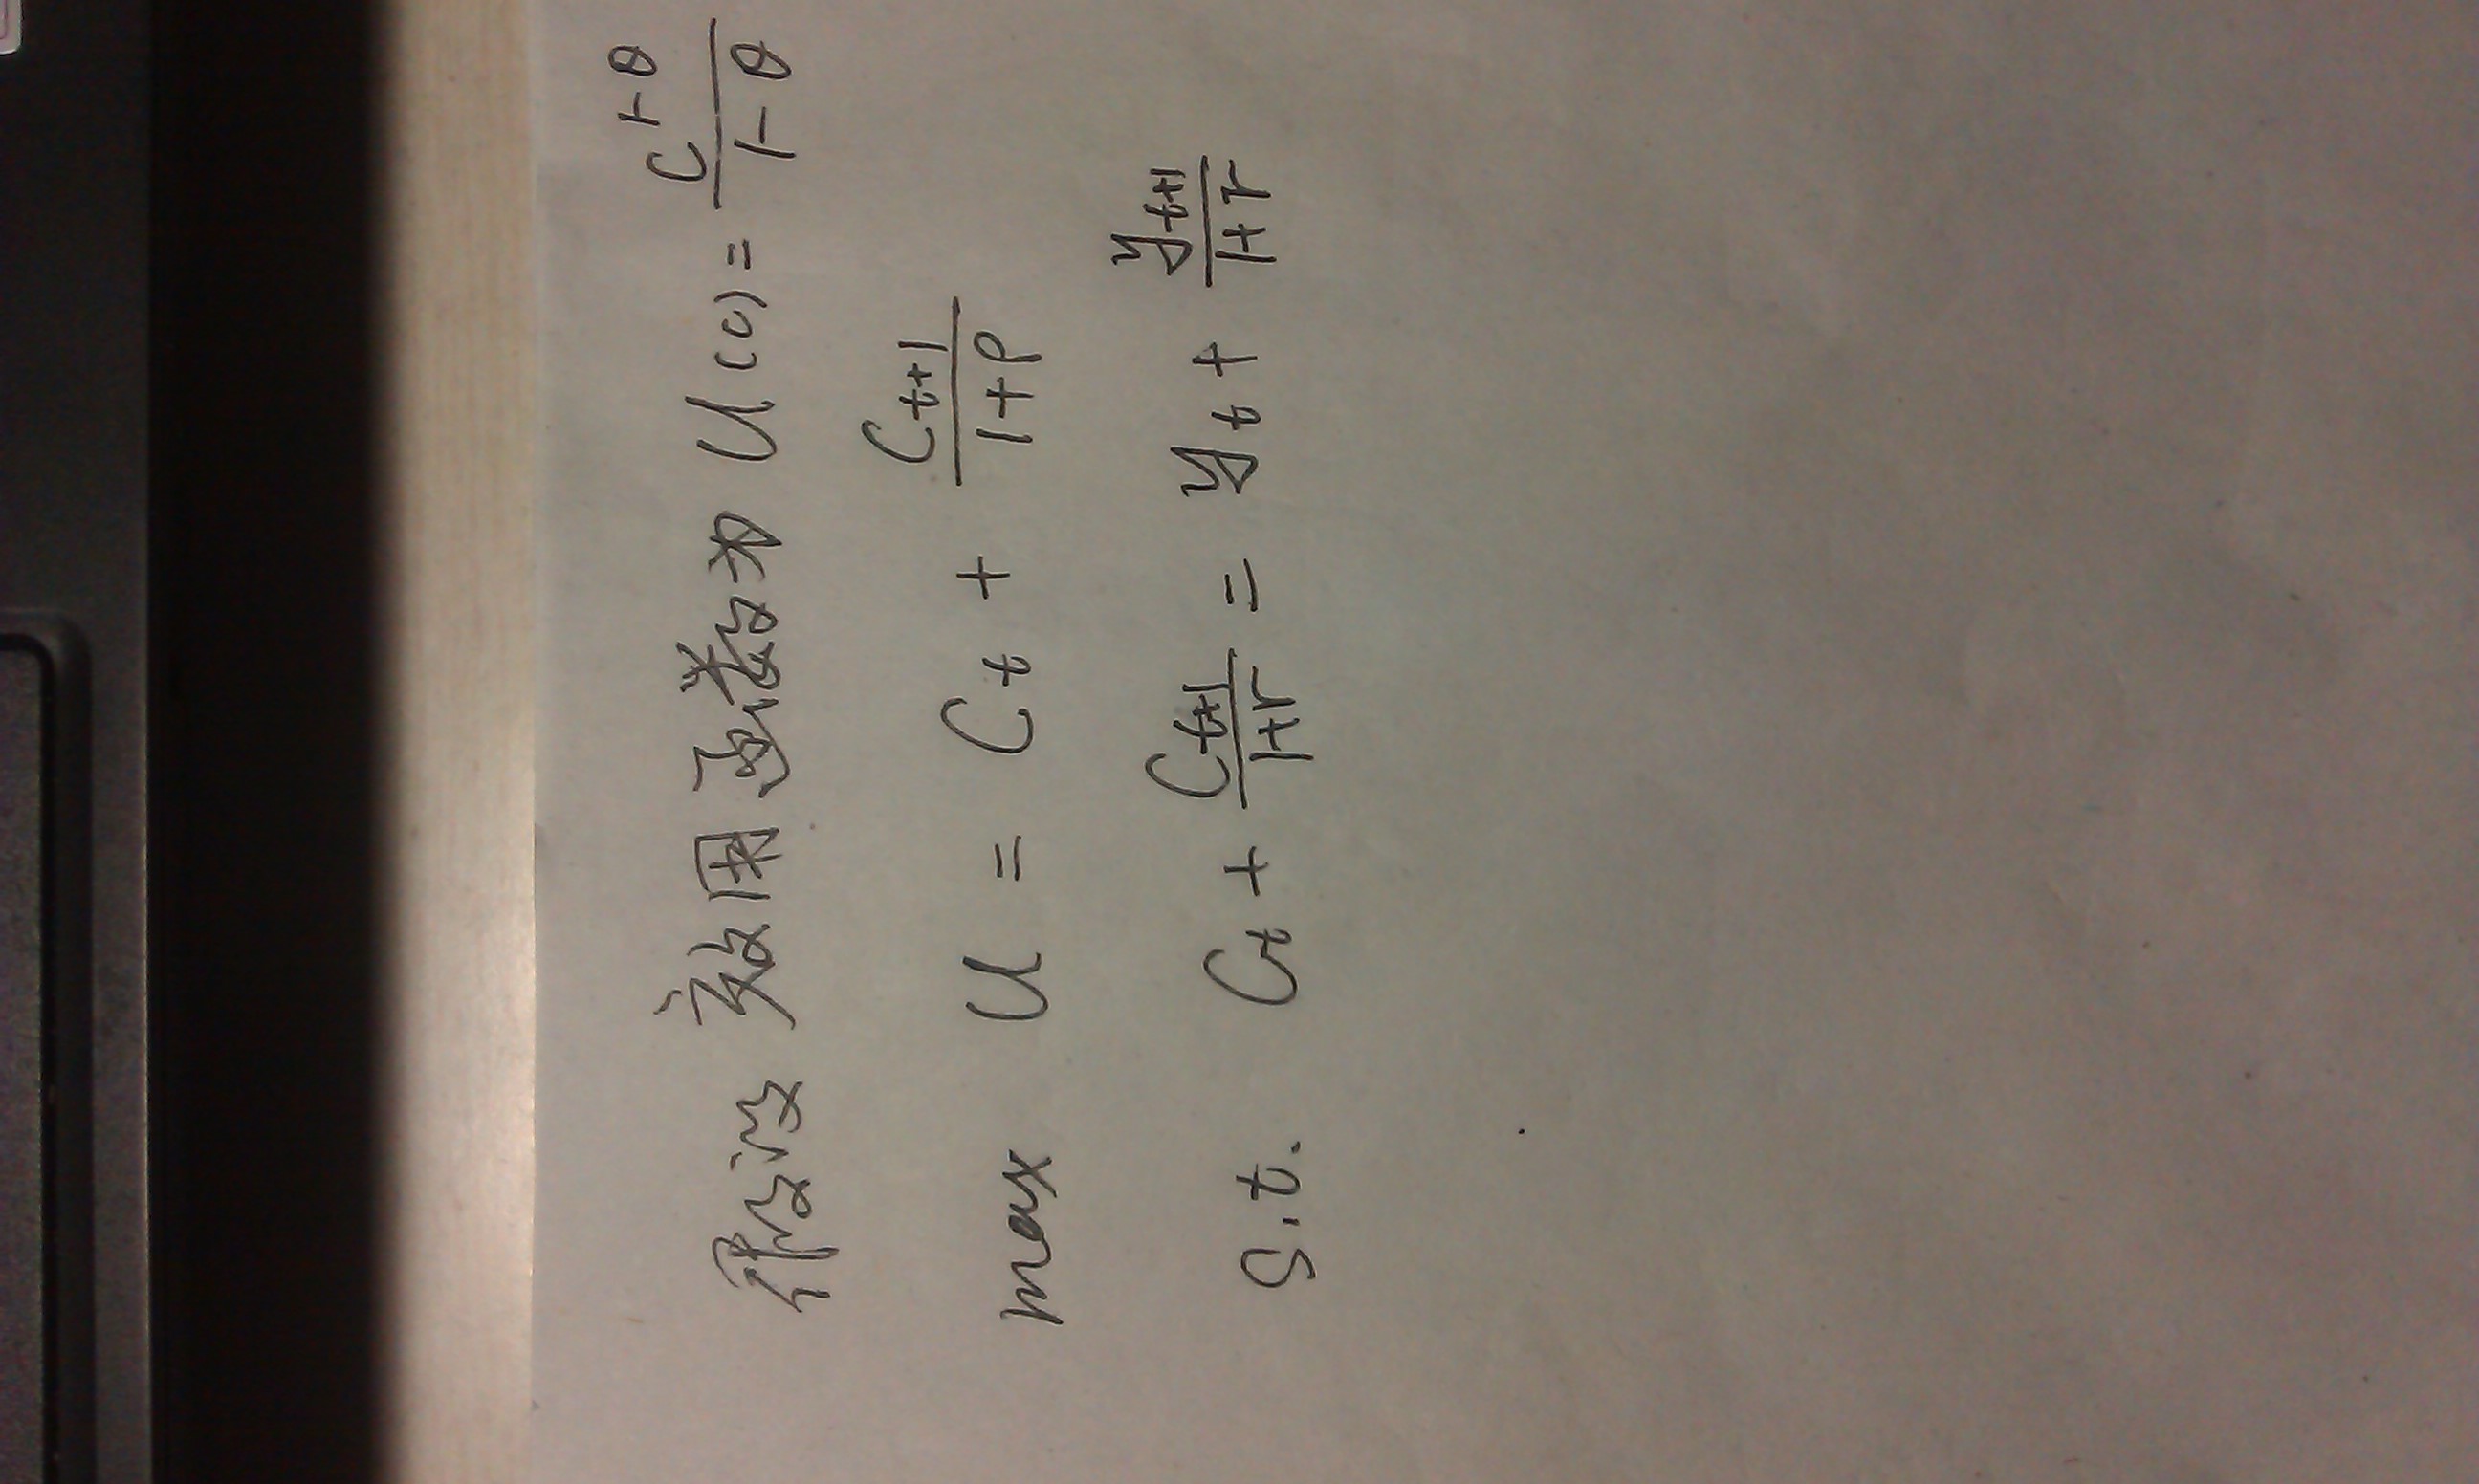 假设 效用函数为 U(c) = \frac{C^{1-θ}}{1-θ}
max U = C_t + \frac{C_{t+1}}{1+ρ}
s.t. C_t + \frac{C_{t+1}}{1+r} = y_t + \frac{y_{t+1}}{1+r}